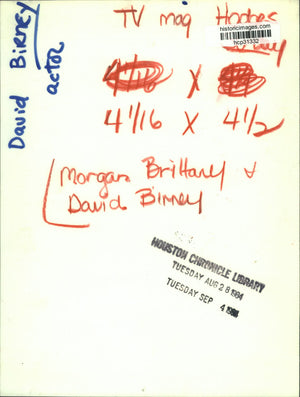 David Birney
actor
TV mag
historicimages.com
hcp31332
4 1/16 X 4 1/2
Morgan Brittany &
David Birney
HOUSTON CHRONICLE LIBRARY
TUESDAY AUG 28 1984
TUESDAY SEP 4 1984